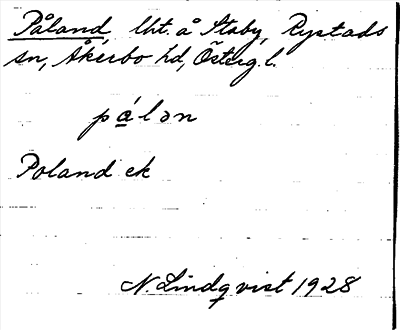 Påland, lht. å Staby, Rystads
sn, Åkerbo hd, Österg. l.
pá̱lən
Poland ek
N. Lindqvist 1928